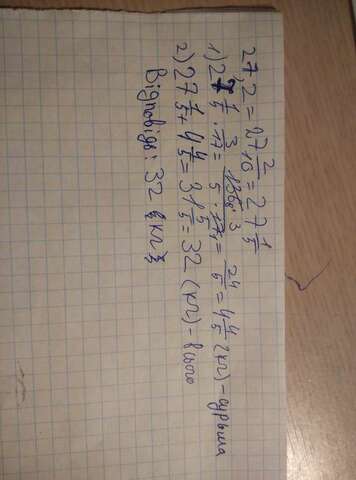 27,2 = 27 2/10 = 27 1/5
1) 27 1/5 · 3/17 = 136 · 3 / 5 · 17 = 24/5 = 4 4/5 (кг) -
2) 27 1/5 + 4 4/5 = 31 5/5 = 32 (кг) - всього
Відповідь: 32 кг